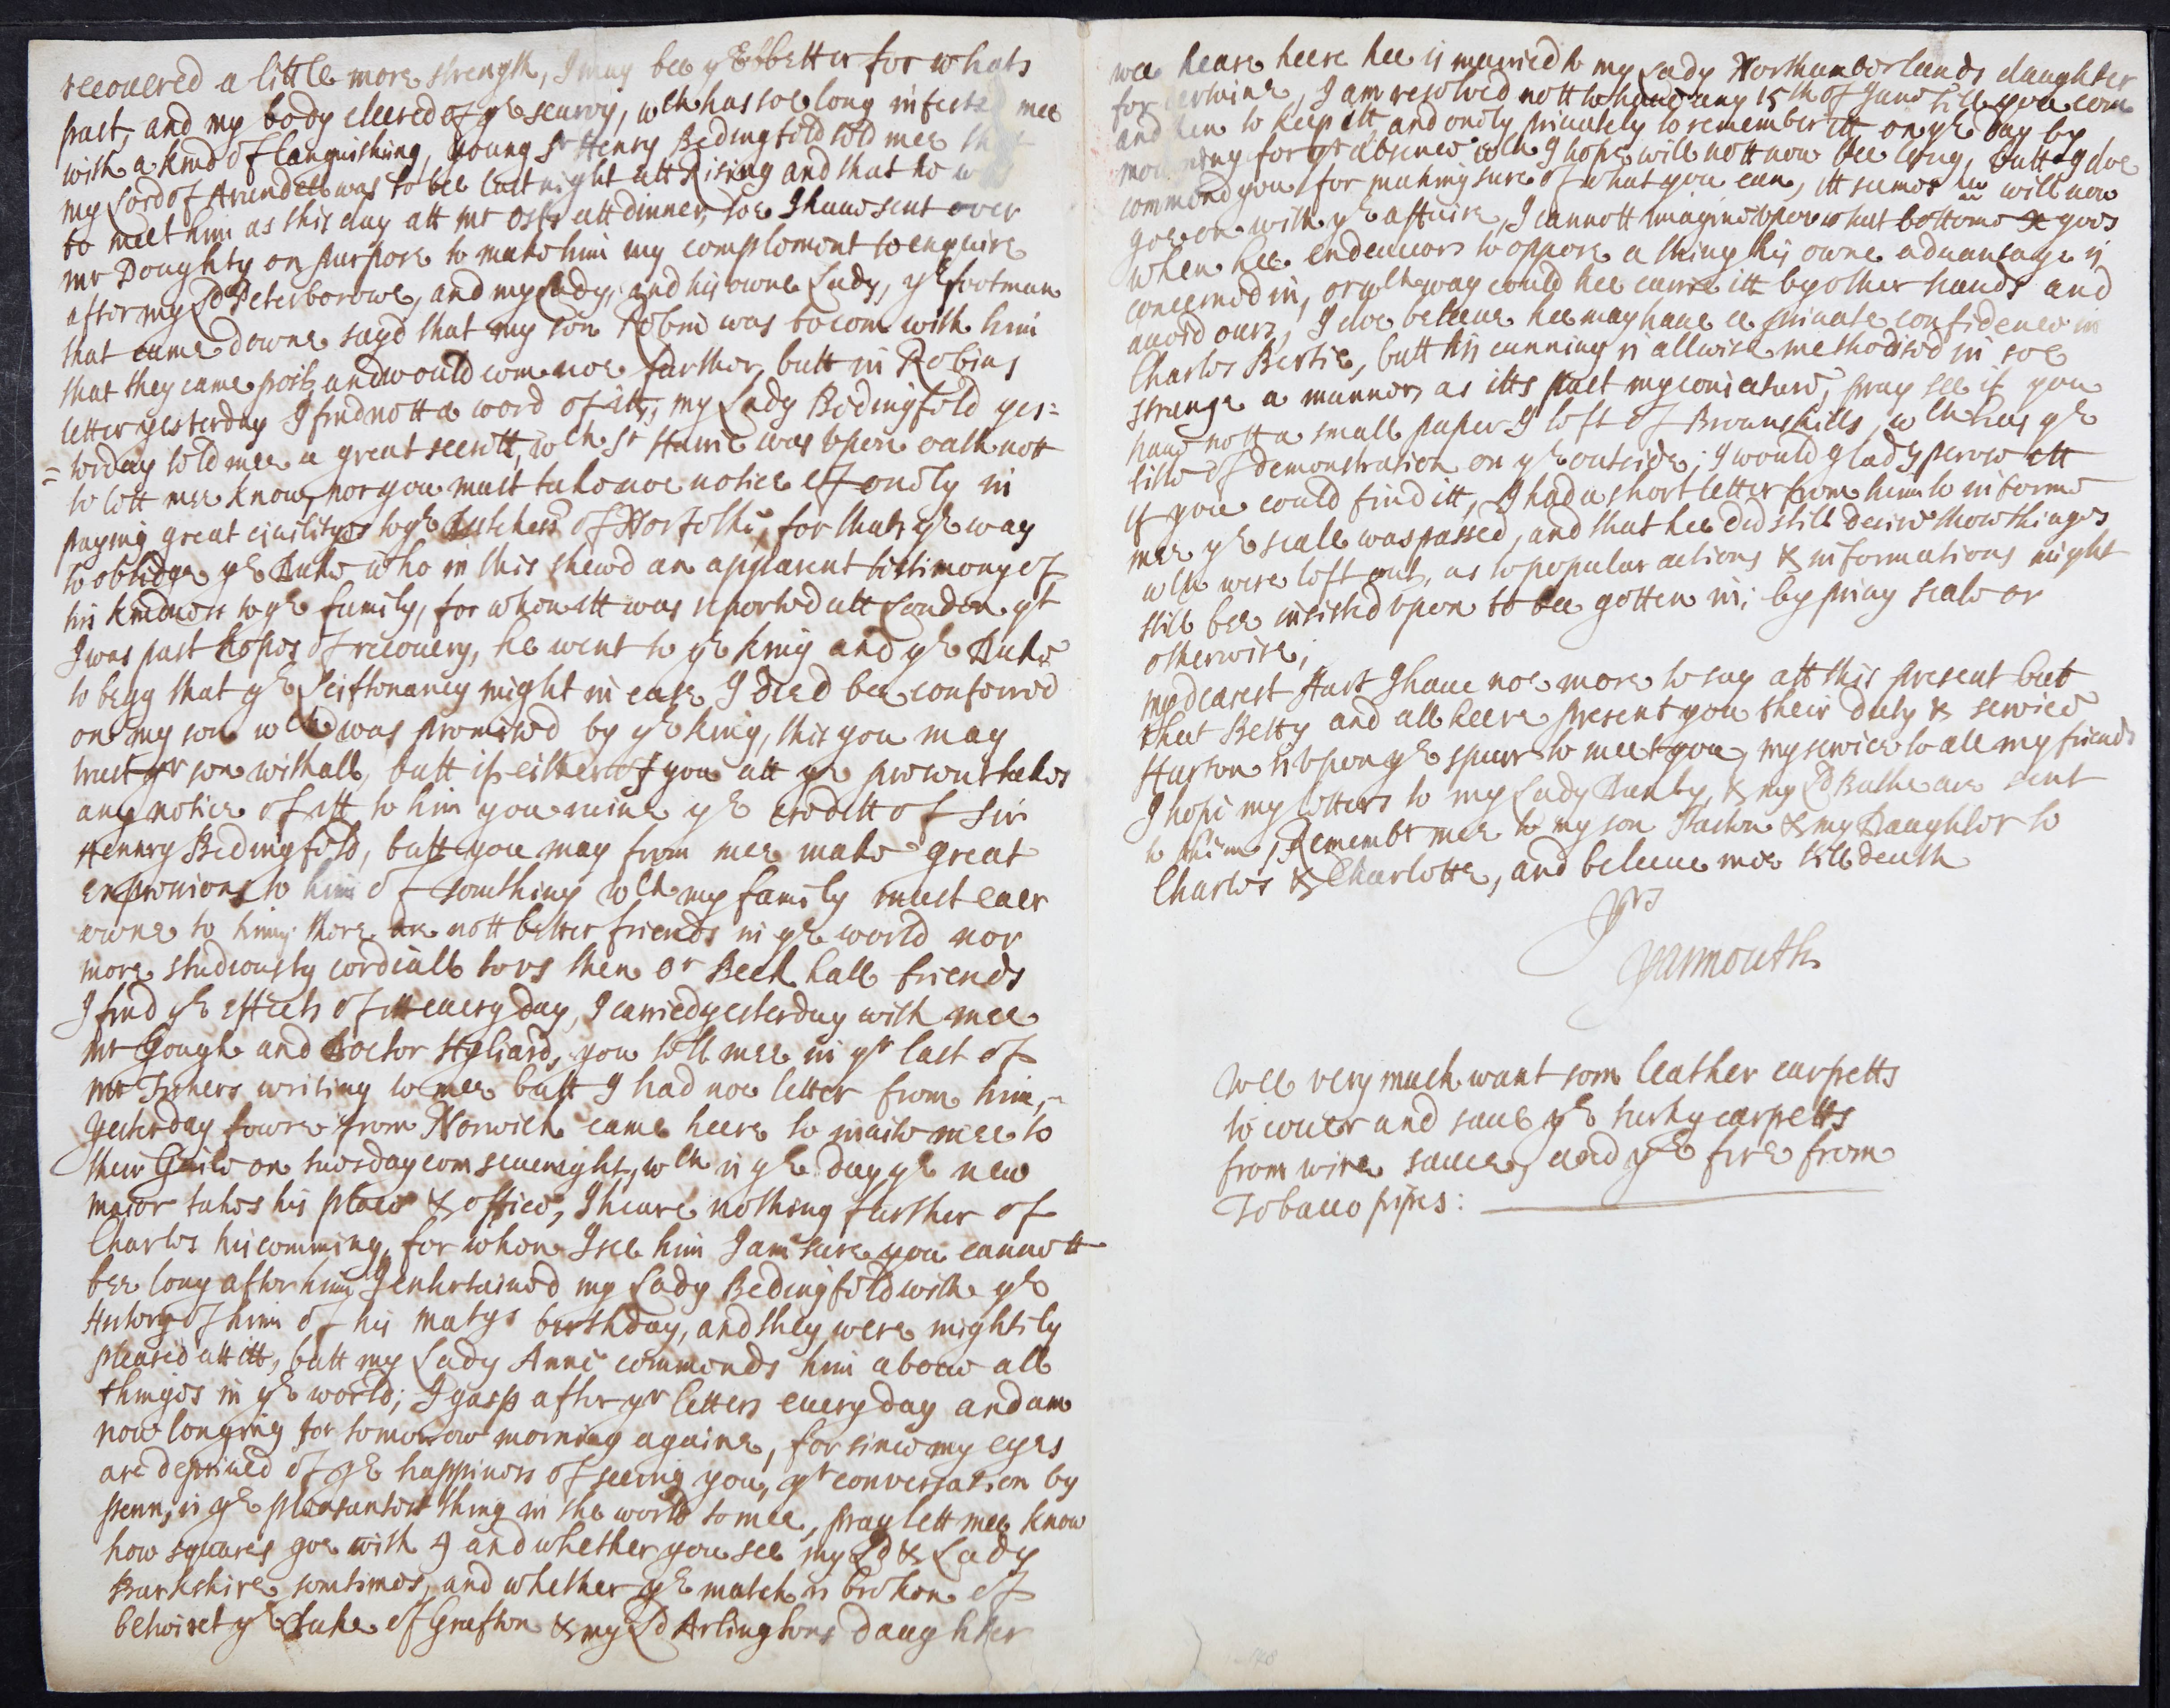 recouered a little more strength, I may bee ye better for whats
past, and my body cleered of ye scurvy, wch has soe long infested mee
with a kind of languishing, young Sr Henry Bedingfeld told mee that
my Lord of Arundell was to bee last night att Rising and that he was
to meet him as this day att mr Osbs att dinner, soe I haue sent over
mr Doughty on purpose to make him my complement to enquire
after my Ld Peterborowe, and my Lady, and his owne Lady, ye footman
that came downe sayd that my son Robin was to com with him
that they came post, and would com noe further, butt in Robins
letter yesterday I find nott a word of itt, my Lady Bedingfeld yes=
=terday told mee a great secrett, wch Sr Harrie was upon oath nott
to lett mee know, nor you must take noe notice of onely in
paying great ciuilityes to ye Dutchess of Norfolke, for thats ye way
to oblidge ye Duke who in this shewd an apparent testimony of
his kindness to ye family, for when itt was reported att London yt
I was past hopes of recouery, he went to ye King and ye Duke
to begg that ye Leiftenancy might in case I died bee conferred
on my son wch was promised by ye King, this you may
trust yr son withall, butt if either of you att ye present takes
any notice of itt to him you ruine ye creditt of Sir
Henry Bedingfeld, butt you may from mee make great
expressions to him of somthing wch my family must euer
owne to him; there are nott better friends in ye world nor
more studiously cordiall to us then or Beck hall friends
I find ye effects of itt euery day, I carried yesterday with mee
mr Gough and Doctor Hyliard, you tell mee in yr last of
mr Fishers writing to mee butt I had noe letter from him,
yesterday fowre from Norwich came heere to inuite mee to
their Guild on tuesday com seuenight, wch is ye day ye new
maior takes his place & office, I heare nothing further of
Charles his comming, for when I see him I am sure you cannott
bee long after him; I entertained my Lady Bedingfeld with ye
History of him of his matys birthday, and they were mightily
pleased att itt, butt my Lady Anne commends him aboue all
things in ye world; I gasp after yr letters euery day and am
now longing for tomorrow morning againe, for since my eyes
are depriued of ye happiness of seeing you, yr conversation by
penn, is ye pleasantest thing in the world to mee, pray lett mee know
how squares goe with 4 and whether you see my Ld & Lady
Barkshire somtimes, and whether ye match is broken of
betwixt ye Duke of Grafton & my Ld Arlingtons daughter
wee heare heere hee is married to my Lady Northumberlands daughter
for certaine, I am resolved nott to haue any 15th of June till you com
and then to keep itt, and onely priuately to remember itt on ye day by
mourning for yr absence wch I hope will nott now bee long, butt I doe
commend you for making sure of what you can, itt seemes hee will now
goe on with ye affaire, I cannott imagine upon what bottome goes
when hee endeauors to oppose a thing his owne aduantage is
concerned in, or wch way could hee carrie itt by other hands and
auoid ours, I doe beleeue hee may haue a priuate confidence in
Charles Bertie, butt his cunning is allwise methodised in soe
strange a manner, as itts past my coniecture, pray see if you
haue nott a small paper I left of Brownhills, wch has ye
title of demonstration on ye outside; I would gladly peruse itt
if you could find itt, I had a short letter from him to informe
mee ye seale was passed, and that hee did still desire those things
wch were left out, as to popular actions & informations might
still bee insisted upon to bee gotten in; by priuy seale or
otherwise;
my dearest Hart I haue noe more to say att this present but
that Betty and all heere present you their duty & service
Hurton is upon ye spurr to meet you, my service to all my friends
I hope my letters to my Lady Danby, & my Ld Bathe are sent
to them, Remembr mee to my son Paston & my Daughter to
Charles & Charlotte, and beleeue mee till death
Yrs
Yarmouth
Wee very much want som leather carpetts
to couer and saue ye turky carpetts
from wine sauce, and ye fire from
Tobacco pipes: